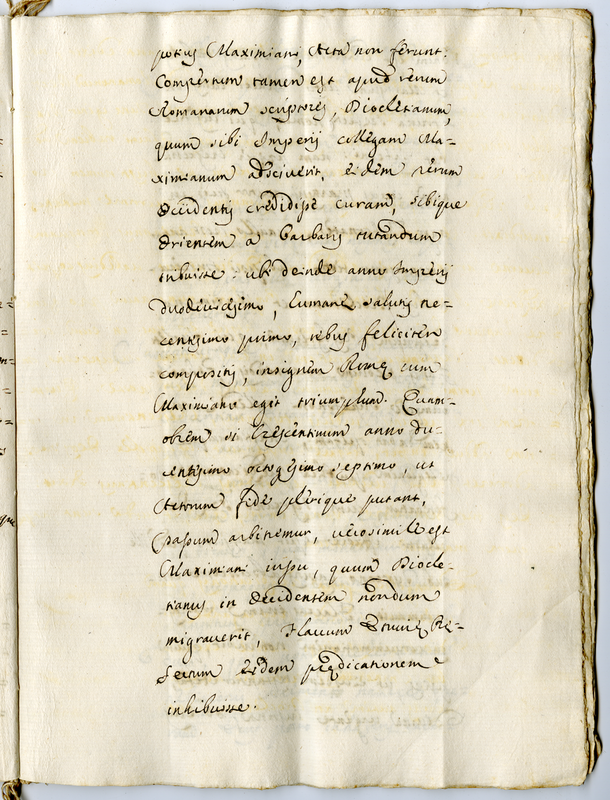 potius Maximiani, Acta non ferunt:
Compertum tamen est apud rerum
Romanarum scriptores, Diocletianum,
quum sibi Imperij collegam Ma-
ximianum adsciverit, eidem rerum
Occidentis credidisse curam, sibique
Orientem a barbaris tutandum
tribuisse: ubi deinde anno Imperij
duodevicesimo, humanę salutis
centesimo primo, rebus feliciter
compositis, insignem Romę cum
Maximiano egit triumphum. Quam-
obrem si Crescentinum anno du-
centesimo octogesimo septimo, ut
Actorum fide plerique putant,
passum arbitremur, verosimile est
Maximiani iussu, quum Diocle-
tianus in Occidentem nondum
migraverit, Flavum Etrurię
eidem prędicationem
inhibuisse.